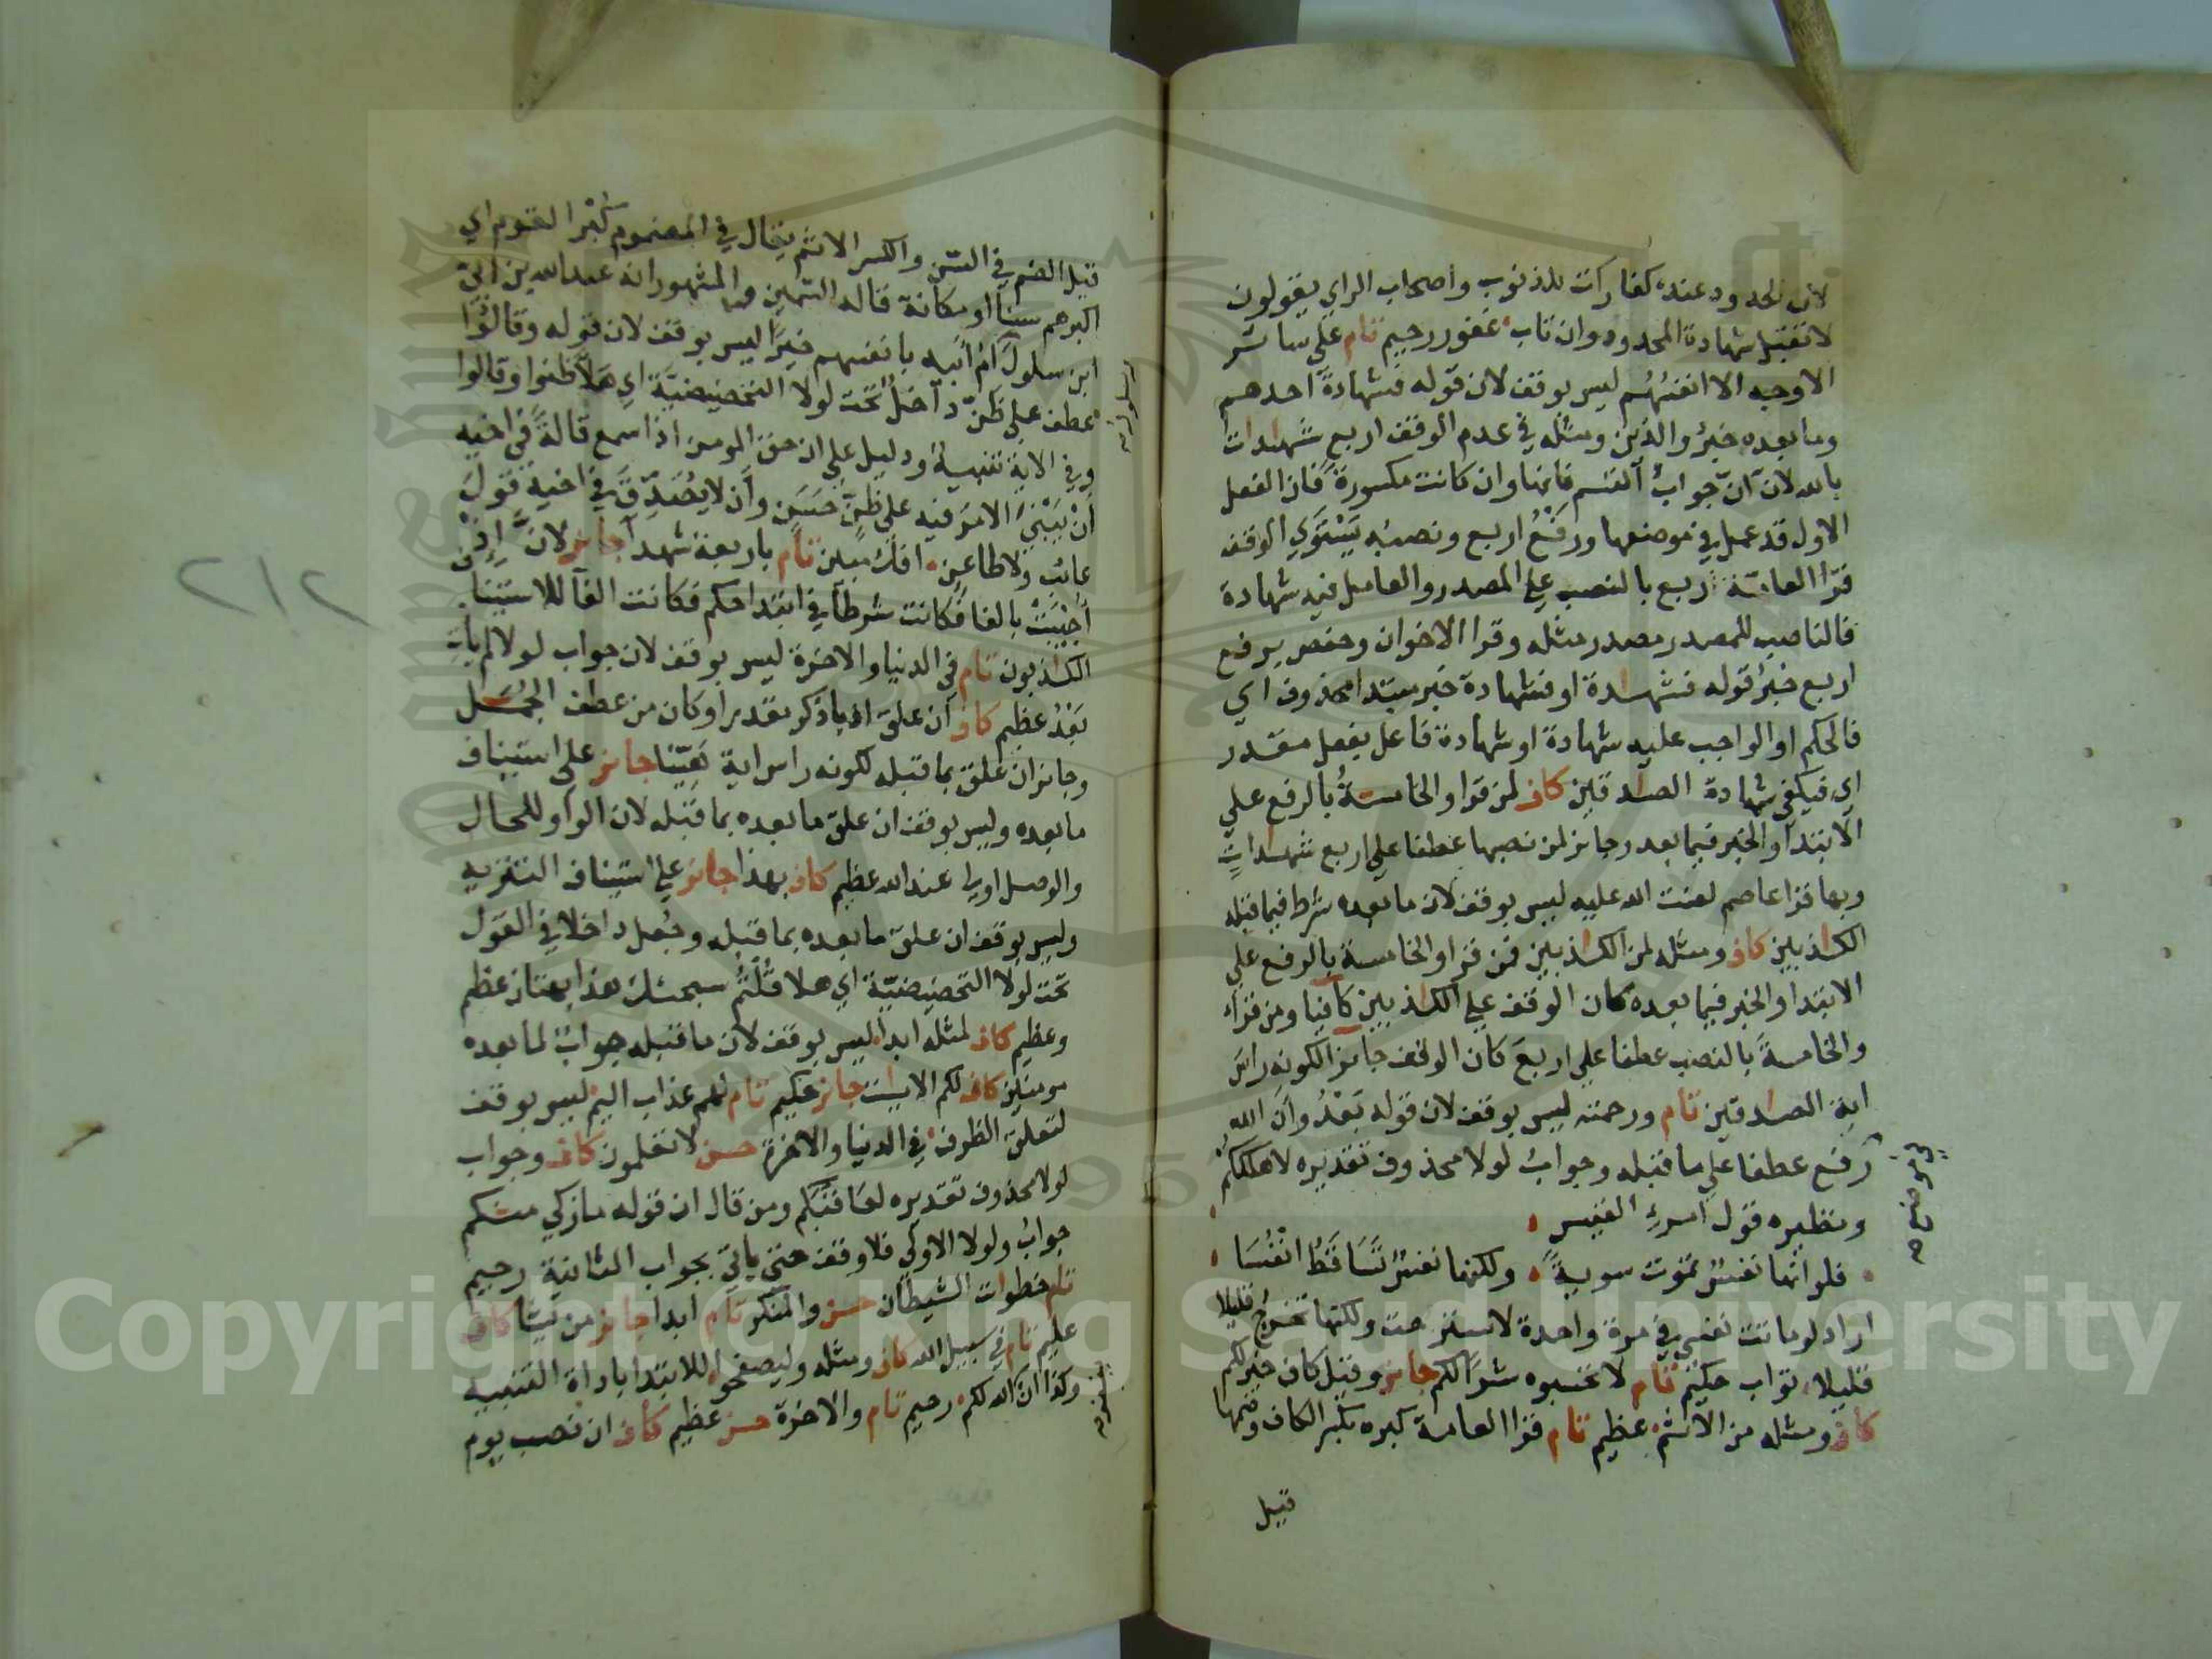 لان الحدود عنده كفارات للذنوب واصحاب الراي يقولون
لا تقبل شهادة المحدود وان تاب غفور رحيم تام على سائر
الاوجه الا انفسهم ليس بوقف لان قوله فشهادة احدهم
وما بعده خبر والذين ومثله في عدم الوقف اربع شهدات
بالله لان ان جواب القسم فانها وان كانت مكسورة فان الفعل
الاول قد عمل في موضعها ورفع اربع ونصبه يستوي الوقف
قرا العامة اربع بالنصب على المصدر والعامل فيه شهادة
فالناصب للمصدر مصدر مثله وقرا الاخوان وحفص برفع
اربع خبر قوله فشهدة او فشهادة خبر مبتدا محذوف اي
فالحكم او الواجب عليه شهادة او شهادة فاعل بفعل مقدر
اي فيكفي شهادة الصدقين كاف لمن قرا والخامسة بالرفع على
الابتدا والخبر فيما بعد وجائز لمن نصبها عطفا على اربع شهدات
وبها قرا عاصم لعنت الله عليه ليس بوقف لان ما بعده شرط فيما قبله
الكذبين كاف ومثله لمن الكذبين فمن قرا والخامسة بالرفع على
الابتدا والخبر فيما بعده كان الوقف على الكذبين كافيا ومن قرأ
والخامسةَ بالنصب عطفا على اربعَ كان الوقف جائزا لكونه راسَ
اية الصدقين تام ورحمته ليس بوقف لان قوله بَعْدُ وان الله
رفع عطفا على ما قبله وجواب لولا محذوف تقديره لاهلككم
ونظيره قول امرءِ القيس
فلو انها نفس تموت سويةً ولكنها نفس تَساقَطُ انفُسَا
اراد لو ماتت نفسي في مرة واحدة لاسترحت ولكنها تخرج قليلا
قليلا تواب حكيم تام لا تحسبوه شرا لكم جائز وقيل كاف خير لكم
كاف ومثله من الاثم عظيم تام قرا العامة كبره بكسر الكاف وضمها
قيل
قيل الضم في السن والكسر الاثم يقال في المضموم كُبْر القوم اي
اكبرهم سنا او مكانة قاله السمين والمشهور انه عبدالله بن ابيّ
ابن سلول بانفسهم خيرًا ليس بوقف لان قوله وقالُوا
عطف على ظَنّ داخلٌ تحت لولا التحضيضيّة اي هَلَّا ظنوا وقالوا
وفي الاية تنبيه ودليل على ان حق المومن اذا سمع قالةً في اخيه
أنْ يَبْنيَ الامر فيه على ظنٍّ حَسَنٍ وأن لا يُصَدِّقَ في اخيه قولَ
عائبٍ ولا طاعنٍ افك مبين تام باربعة شهدا جائز لانَّ إذْ
أُجِيبَتْ بالفا فكانت شرطًا في ابتدا حكم فكانت الفآ للاستيناف
الكذبون تام في الدنيا والاخرة ليس بوقف لان جواب لولا لم يأت
بَعْدُ عظيم كاف ان علق اذ باذكر مقدرا وكان من عطف الجُمَل
وجائز ان علق بما قبله لكونه راس اية هَيِّنًا جائز على استيناف
ما بعده وليس بوقف ان علق ما بعده بما قبله لان الواو للحال
والوصل اولى عند الله عظيم كاف بهذا جائز على استيناف التنزيه
وليس بوقف ان علق ما بعده بما قبله وجُعل داخلا في القول
تحت لولا التحضيضيّة اي هلا قُلْتُم سبحنك هذا بهتان عظيم
وعظيم كاف لمثله ابدا ليس بوقف لان ما قبله جواب لما بعده
مومنين كاف لكم الايت جائز حكيم تام لهم عذاب اليم ليس بوقف
لتعلق الظرف في الدنيا والاخرة حسن لا تعلمون كاف وجواب
لولا محذوف تقديره لعَاقَبَكم ومن قال ان قوله ما زكي منكم
جواب ولولا الاولى فلا وقف حتى ياتي بجواب الثانية رحيم
تام خطوات الشيطان حسن والمنكر تام ابدا جائز من يشا كاف
عليم تام في سبيل الله كاف ومثله وليصفحوا للابتدا باداة التنبيه
وكذا ان الله لكم رحيم تام والاخرة حسن عظيم كاف ان نصب يوم
٢١٢